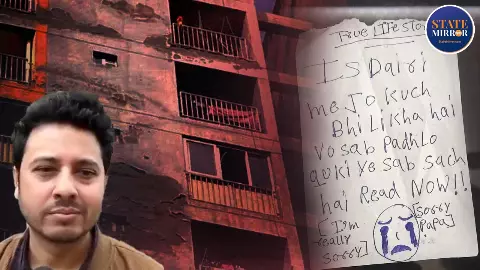 True LiFe Story
Is Dairi
me Jo kuch
Bhi Likha hai
vo sab Padh Lo
quki ye sab sach
hai Read Now!!
[I'm really sorry]
[Sorry Papa]
STATE
MIRROR